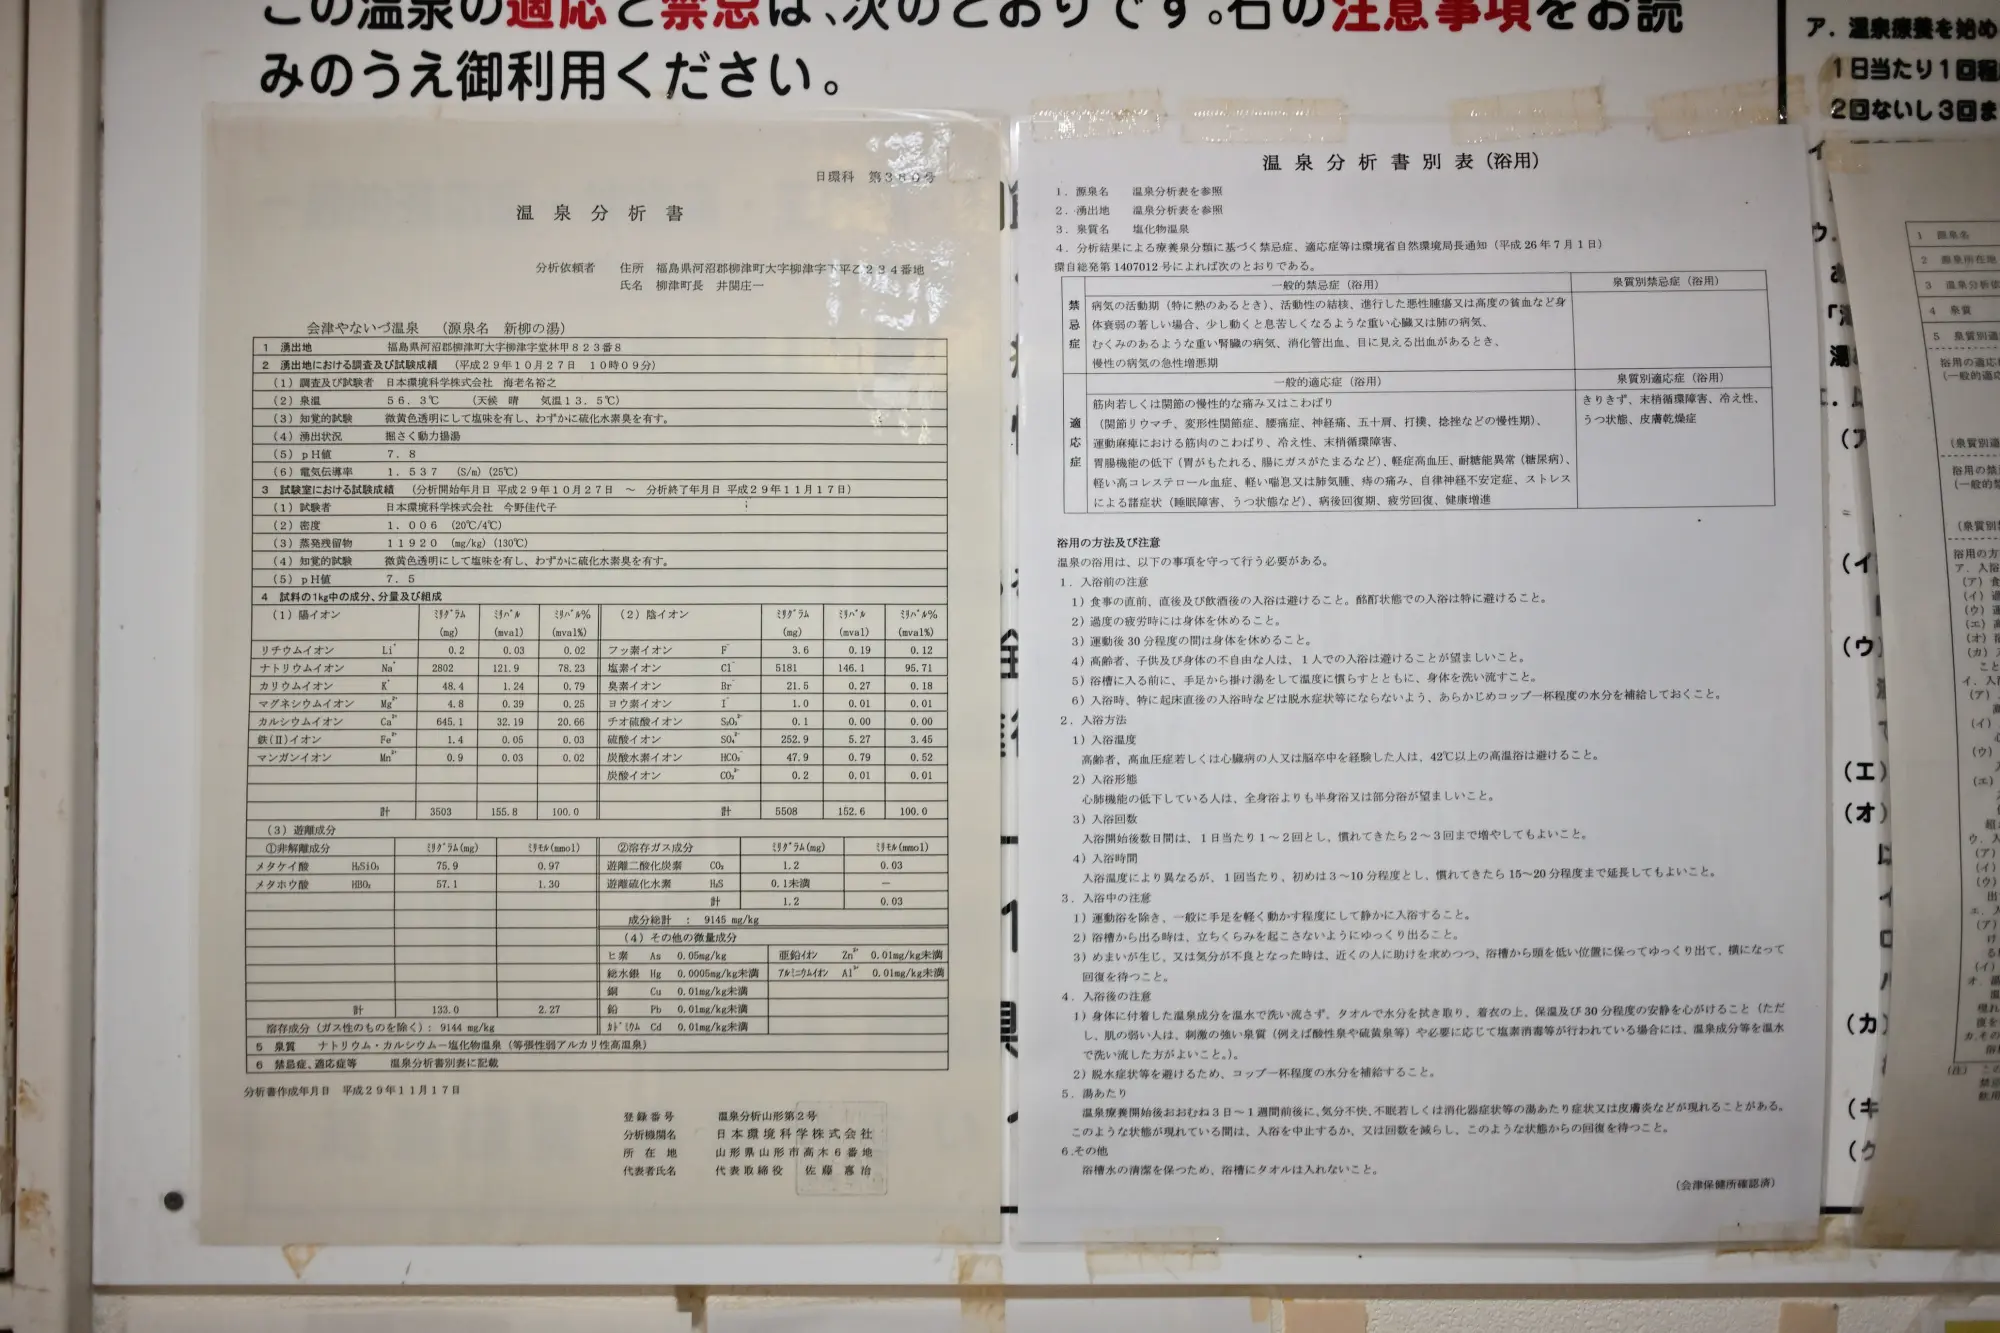 この温泉の適応と禁忌は、次のとおりです。右の注意事項をお読
みのうえ御利用ください。
日環科 第380号
温泉分析書
分析依頼者 住所 福島県河沼郡柳津町大字柳津字下平乙234番地
氏名 柳津町長 井関庄一
会津やないづ温泉 (源泉名 新柳の湯)
1 湧出地 福島県河沼郡柳津町大字柳津字堂林甲823番8
2 湧出地における調査及び試験成績 (平成29年10月27日 10時09分)
(1) 調査及び試験者 日本環境科学株式会社 海老名裕之
(2) 泉温 56.3℃ (天候 晴 気温13.5℃)
(3) 知覚的試験 微黄色透明にして塩味を有し、わずかに硫化水素臭を有す。
(4) 湧出状況 掘さく動力揚湯
(5) pH値 7.8
(6) 電気伝導率 1.537 (S/m) (25℃)
3 試験室における試験成績 (分析開始年月日 平成29年10月27日 ~ 分析終了年月日 平成29年11月17日)
(1) 試験者 日本環境科学株式会社 今野佳代子
(2) 密度 1.006 (20℃/4℃)
(3) 蒸発残留物 11920 (mg/kg) (130℃)
(4) 知覚的試験 微黄色透明にして塩味を有し、わずかに硫化水素臭を有す。
(5) pH値 7.5
4 試料の1kg中の成分、分量及び組成
(1) 陽イオン ミリグラム ミリバル ミリバル% (2) 陰イオン ミリグラム ミリバル ミリバル%
(mg) (mval) (mval%) (mg) (mval) (mval%)
リチウムイオン Li⁺ 0.2 0.03 0.02 フッ素イオン F⁻ 3.6 0.19 0.12
ナトリウムイオン Na⁺ 2802 121.9 78.23 塩素イオン Cl⁻ 5181 146.1 95.71
カリウムイオン K⁺ 48.4 1.24 0.79 臭素イオン Br⁻ 21.5 0.27 0.18
マグネシウムイオン Mg²⁺ 4.8 0.39 0.25 ヨウ素イオン I⁻ 1.0 0.01 0.01
カルシウムイオン Ca²⁺ 645.1 32.19 20.66 チオ硫酸イオン S₂O₃²⁻ 0.1 0.00 0.00
鉄(Ⅱ)イオン Fe²⁺ 1.4 0.05 0.03 硫酸イオン SO₄²⁻ 252.9 5.27 3.45
マンガンイオン Mn²⁺ 0.9 0.03 0.02 炭酸水素イオン HCO₃⁻ 47.9 0.79 0.52
炭酸イオン CO₃²⁻ 0.2 0.01 0.01
計 3503 155.8 100.0 計 5508 152.6 100.0
(3) 遊離成分
①非解離成分 ミリグラム(mg) ミリモル(mmol) ②溶存ガス成分 ミリグラム(mg) ミリモル(mmol)
メタケイ酸 H₂SiO₃ 75.9 0.97 遊離二酸化炭素 CO₂ 1.2 0.03
メタホウ酸 HBO₂ 57.1 1.30 遊離硫化水素 H₂S 0.1未満 −
計 1.2 0.03
成分総計 : 9145 mg/kg
(4) その他の微量成分
ヒ素 As 0.05mg/kg 亜鉛イオン Zn²⁺ 0.01mg/kg未満
総水銀 Hg 0.0005mg/kg未満 アルミニウムイオン Al³⁺ 0.01mg/kg未満
銅 Cu 0.01mg/kg未満
計 133.0 2.27 鉛 Pb 0.01mg/kg未満
溶存成分(ガス性のものを除く): 9144 mg/kg カドミウム Cd 0.01mg/kg未満
5 泉質 ナトリウム・カルシウム−塩化物温泉(等張性弱アルカリ性高温泉)
6 禁忌症、適応症等 温泉分析書別表に記載
分析書作成年月日 平成29年11月17日
登録番号 温泉分析山形第2号
分析機関名 日本環境科学株式会社
所在地 山形県山形市高木6番地
代表者氏名 代表取締役 佐藤惠治
温泉分析書別表(浴用)
1.源泉名 温泉分析表を参照
2.湧出地 温泉分析表を参照
3.泉質名 塩化物温泉
4.分析結果による療養泉分類に基づく禁忌症、適応症等は環境省自然環境局長通知(平成26年7月1日)
環自総発第1407012号によれば次のとおりである。
一般的禁忌症(浴用) 泉質別禁忌症(浴用)
禁忌症
病気の活動期(特に熱のあるとき)、活動性の結核、進行した悪性腫瘍又は高度の貧血など身
体衰弱の著しい場合、少し動くと息苦しくなるような重い心臓又は肺の病気、
むくみのあるような重い腎臓の病気、消化管出血、目に見える出血があるとき、
慢性の病気の急性増悪期
一般的適応症(浴用) 泉質別適応症(浴用)
適応症
筋肉若しくは関節の慢性的な痛み又はこわばり
(関節リウマチ、変形性関節症、腰痛症、神経痛、五十肩、打撲、捻挫などの慢性期)、
運動麻痺における筋肉のこわばり、冷え性、末梢循環障害、
胃腸機能の低下(胃がもたれる、腸にガスがたまるなど)、軽症高血圧、耐糖能異常(糖尿病)、
軽い高コレステロール血症、軽い喘息又は肺気腫、痔の痛み、自律神経不安定症、ストレス
による諸症状(睡眠障害、うつ状態など)、病後回復期、疲労回復、健康増進
きりきず、末梢循環障害、冷え性、
うつ状態、皮膚乾燥症
浴用の方法及び注意
温泉の浴用は、以下の事項を守って行う必要がある。
1.入浴前の注意
1)食事の直前、直後及び飲酒後の入浴は避けること。酩酊状態での入浴は特に避けること。
2)過度の疲労時には身体を休めること。
3)運動後30分程度の間は身体を休めること。
4)高齢者、子供及び身体の不自由な人は、1人での入浴は避けることが望ましいこと。
5)浴槽に入る前に、手足から掛け湯をして温度に慣らすとともに、身体を洗い流すこと。
6)入浴時、特に起床直後の入浴時などは脱水症状等にならないよう、あらかじめコップ一杯程度の水分を補給しておくこと。
2.入浴方法
1)入浴温度
高齢者、高血圧症若しくは心臓病の人又は脳卒中を経験した人は、42℃以上の高温浴は避けること。
2)入浴形態
心肺機能の低下している人は、全身浴よりも半身浴又は部分浴が望ましいこと。
3)入浴回数
入浴開始後数日間は、1日当たり1~2回とし、慣れてきたら2~3回まで増やしてもよいこと。
4)入浴時間
入浴温度により異なるが、1回当たり、初めは3~10分程度とし、慣れてきたら15~20分程度まで延長してもよいこと。
3.入浴中の注意
1)運動浴を除き、一般に手足を軽く動かす程度にして静かに入浴すること。
2)浴槽から出る時は、立ちくらみを起こさないようにゆっくり出ること。
3)めまいが生じ、又は気分が不良となった時は、近くの人に助けを求めつつ、浴槽から頭を低い位置に保ってゆっくり出て、横になって
回復を待つこと。
4.入浴後の注意
1)身体に付着した温泉成分を温水で洗い流さず、タオルで水分を拭き取り、着衣の上、保温及び30分程度の安静を心がけること(ただ
し、肌の弱い人は、刺激の強い泉質(例えば酸性泉や硫黄泉等)や必要に応じて塩素消毒等が行われている場合には、温泉成分等を温水
で洗い流した方がよいこと。)。
2)脱水症状等を避けるため、コップ一杯程度の水分を補給すること。
5.湯あたり
温泉療養開始後おおむね3日~1週間前後に、気分不快、不眠若しくは消化器症状等の湯あたり症状又は皮膚炎などが現れることがある。
このような状態が現れている間は、入浴を中止するか、又は回数を減らし、このような状態からの回復を待つこと。
6.その他
浴槽水の清潔を保つため、浴槽にタオルは入れないこと。
(会津保健所確認済)
ア.温泉療養を始め
1日当たり1回程
2回ないし3回ま
1 源泉名
2 源泉所在地
3 温泉分析
4 泉質
5 泉質別
(イ
(ウ)
(エ)
(オ)
(カ)
(キ
(ク